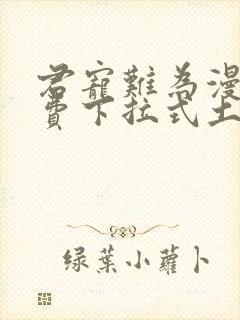 君寵難為漫
費下拉式土
綠葉小蘿卜